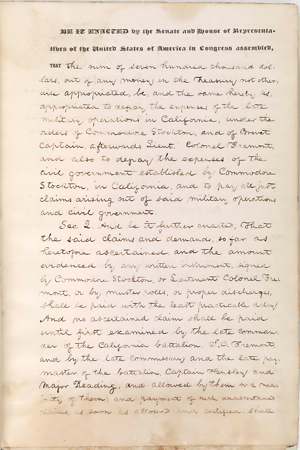 BE IT ENACTED by the Senate and House of Representa-
tives of the United States of America in Congress assembled,
THAT the sum of seven hundred thousand dol-
lars, out of any money in the Treasury not other-
wise appropriated, be, and the same hereby is,
appropriated to defray the expenses of the late
military operations in California, under the
orders of Commodore Stockton, and of Brevet
Captain, afterwards Lieut. Colonel Fremont,
and also to defray the expenses of the
civil government established by Commodore
Stockton, in California, and to pay all just
claims arising out of said military operations
and civil government.
Sec 2. And be it further enacted, That
the said claims and demands, so far as
heretofore ascertained and the amount
evidenced by any written instrument, signed
by Commodore Stockton, or Lieutenant Colonel Fre-
mont, or by muster rolls, or proper discharges,
shall be paid with the least practicable delay
And no ascertained claim shall be paid
until first examined by the late comman-
der of the California battalion, J. C. Fremont,
and by the late Commissary and the late pay-
master of the battalion, Captain Hensley and
Major Reading, and allowed by them or a ma-
jority of them, and payment of such unascertained
claims, as soon as allowed and certified, shall